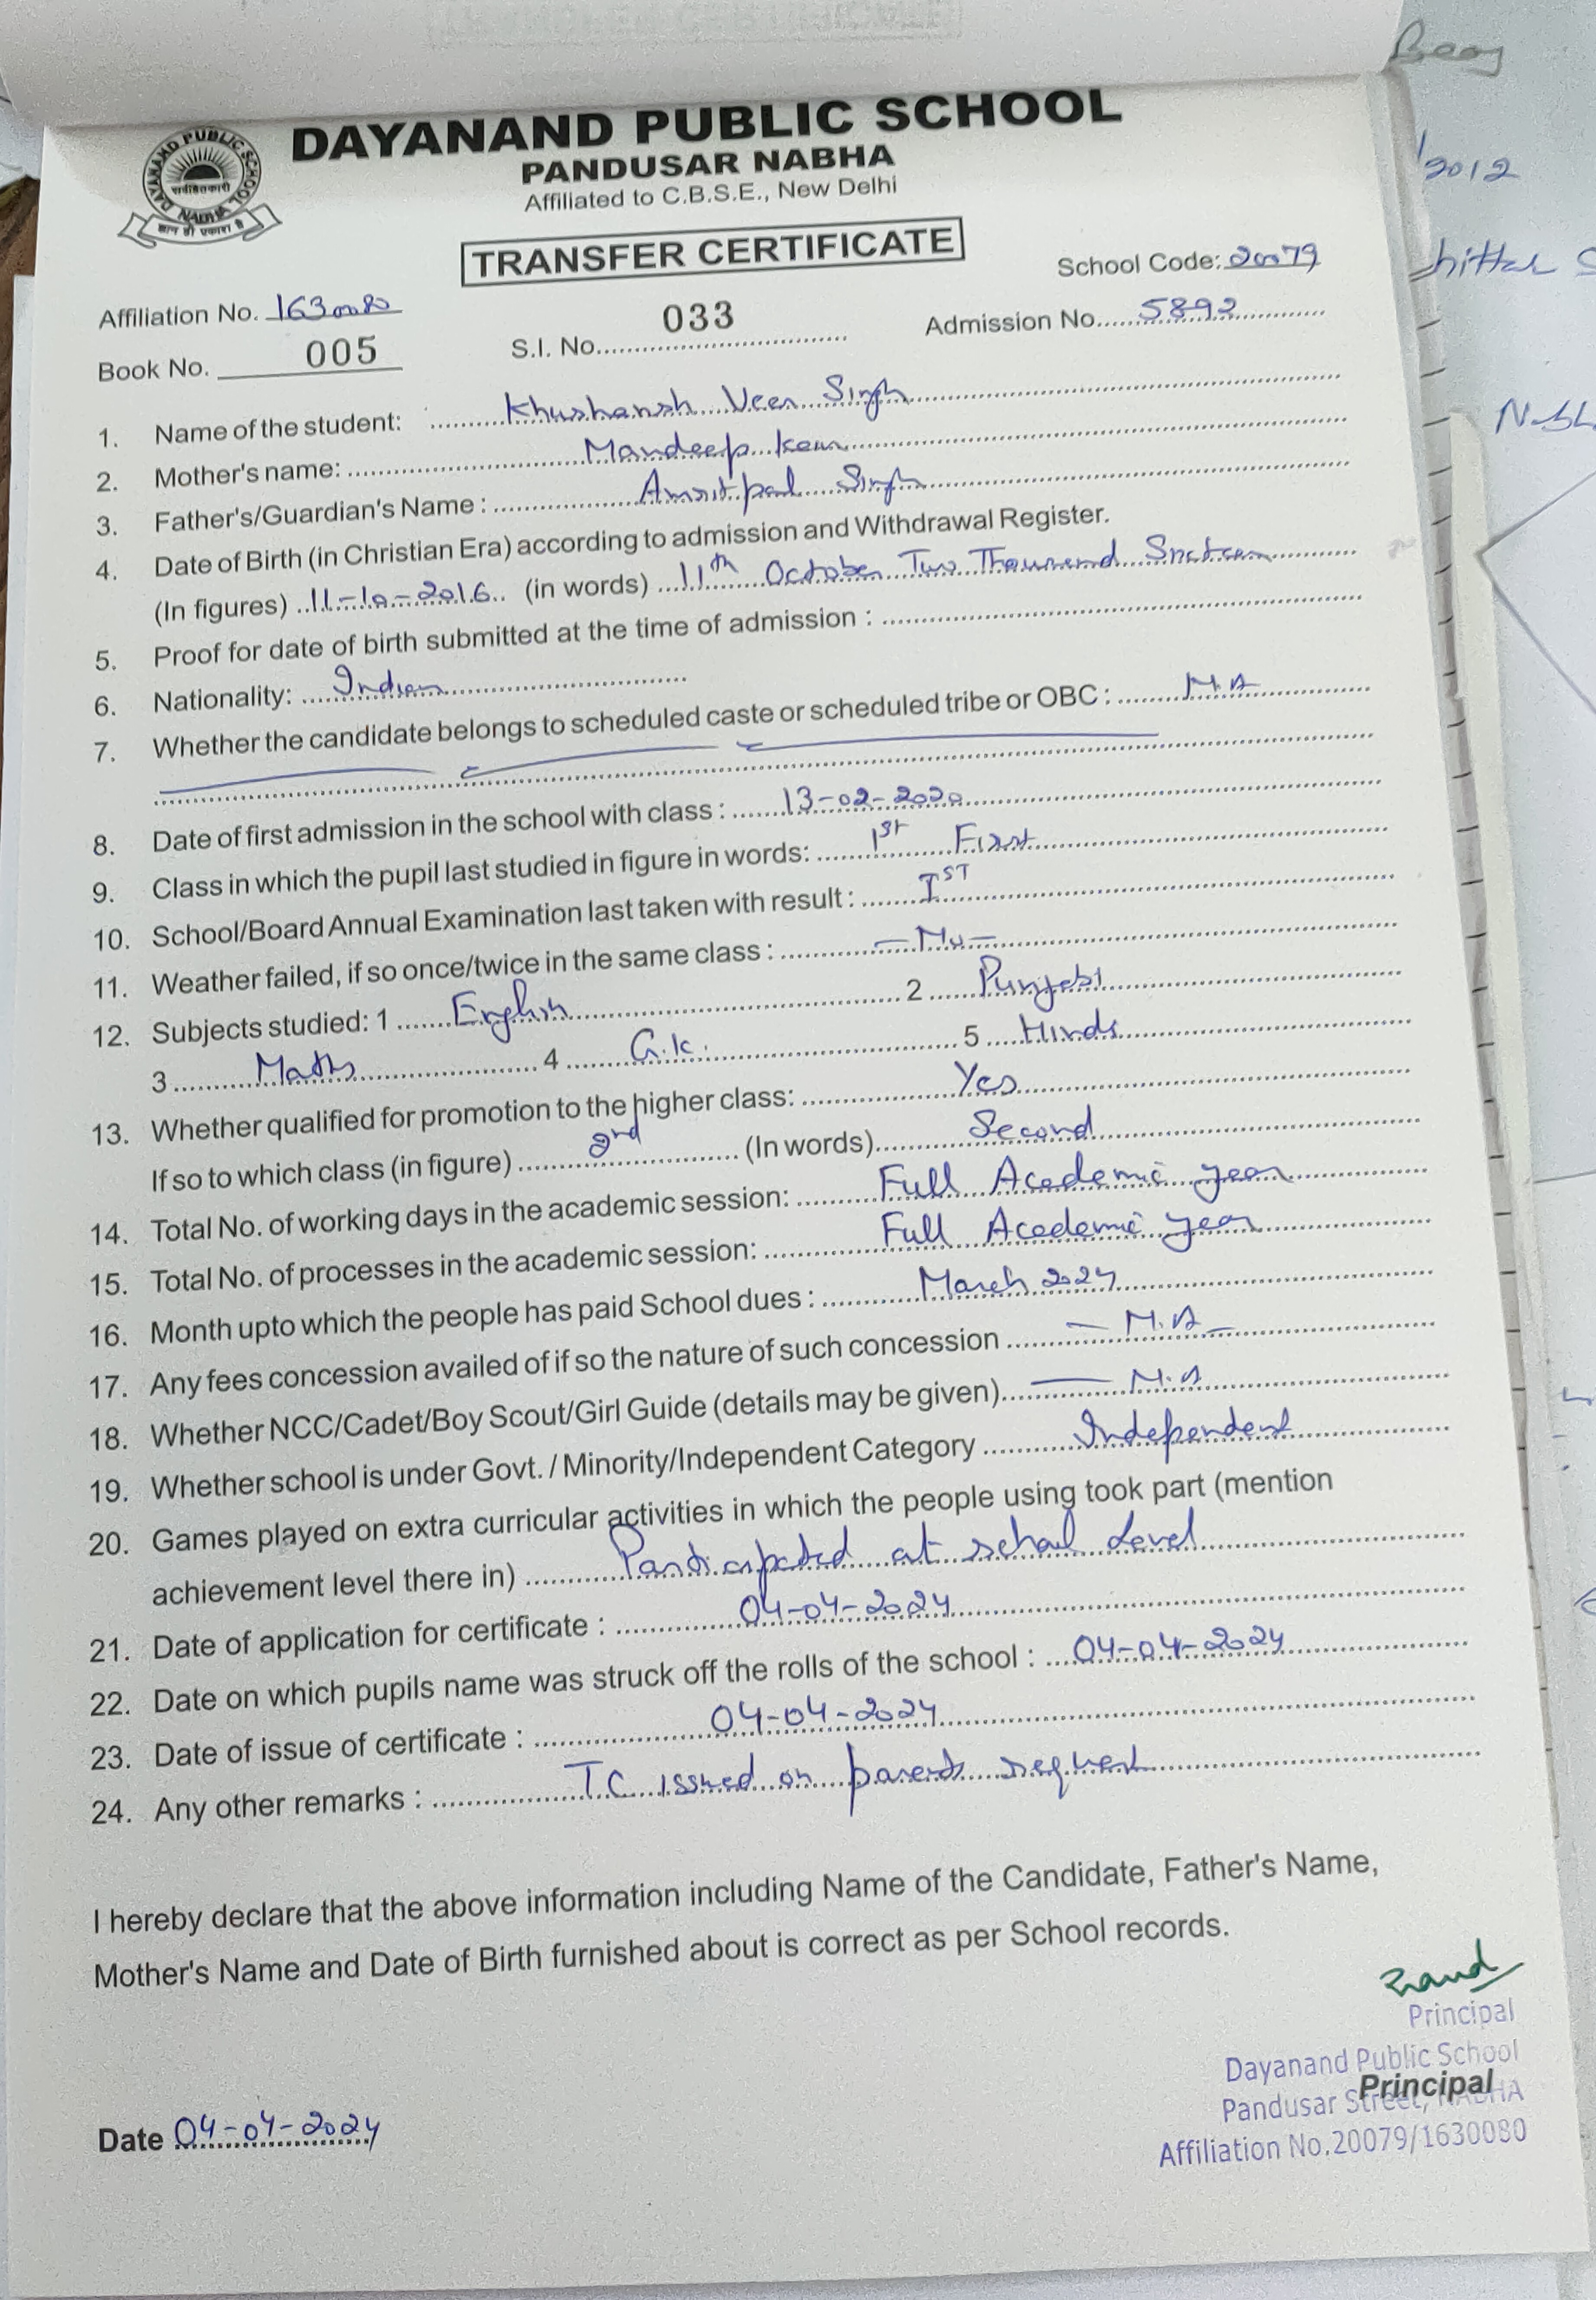 DAYANAND PUBLIC SCHOOL
PANDUSAR NABHA
Affiliated to C.B.S.E., New Delhi
DAYANAND PUBLIC SCHOOL NABHA
TRANSFER CERTIFICATE
School Code: 20079
Affiliation No. 1630080
Book No. 005
S.I. No. 033
Admission No. 5892
1. Name of the student: Khushansh Veer Singh
2. Mother's name: Mandeep Kaur
3. Father's/Guardian's Name : Amritpal Singh
4. Date of Birth (in Christian Era) according to admission and Withdrawal Register.
(In figures) 11-10-2016 (in words) 11th October Two Thousand Sixteen
5. Proof for date of birth submitted at the time of admission :
6. Nationality: Indian
7. Whether the candidate belongs to scheduled caste or scheduled tribe or OBC : N.A
8. Date of first admission in the school with class : 13-02-2020
9. Class in which the pupil last studied in figure in words: 1st First
10. School/Board Annual Examination last taken with result : Ist
11. Weather failed, if so once/twice in the same class : - No -
12. Subjects studied: 1 English 2 Punjabi
3 Maths 4 G.K. 5 Hindi
13. Whether qualified for promotion to the higher class: Yes
If so to which class (in figure) 2nd (In words) Second
14. Total No. of working days in the academic session: Full Academic year
15. Total No. of processes in the academic session: Full Academic year
16. Month upto which the people has paid School dues : March 2024
17. Any fees concession availed of if so the nature of such concession - N.A -
18. Whether NCC/Cadet/Boy Scout/Girl Guide (details may be given) - N.A
19. Whether school is under Govt. / Minority/Independent Category Independent
20. Games played on extra curricular activities in which the people using took part (mention
achievement level there in) Participated at school level
21. Date of application for certificate : 04-04-2024
22. Date on which pupils name was struck off the rolls of the school : 04-04-2024
23. Date of issue of certificate : 04-04-2024
24. Any other remarks : TC issued on parents request
I hereby declare that the above information including Name of the Candidate, Father's Name,
Mother's Name and Date of Birth furnished about is correct as per School records.
Principal
Dayanand Public School
Pandusar Street, NABHA
Principal
Affiliation No.20079/1630080
Date 04-04-2024
2012